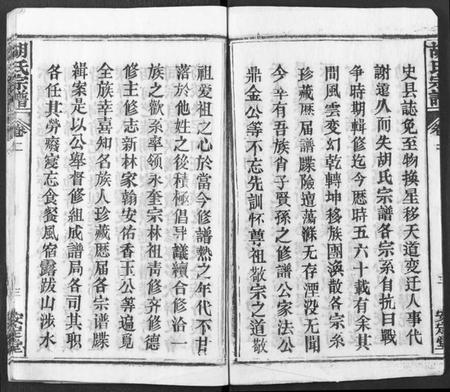 胡氏宗譜
卷十
三
安定堂
史县誌免至物換星移天道变迁人事代
謝遠久而失胡氏宗譜各宗系自抗日戰
争時期輯修迄今歷時五六十載有余其
間風雲变幻乾轉坤移族團渙散各宗系
珍藏歷届譜牒險遭蕩滌无存湮没无聞
今辛有吾族肖子賢孫之修譜公家法公
鼎金公等不忘先訓怀尊祖敬宗之道敬
祖爱祖之心於當今修譜熱之年代不甘
落於他姓之後積極倡导議續合修洽一
族之歡系率领永奎宗林祖菁修齐修德
修主修志新林家翰安佑香玉公等遍覓
全族幸喜知名族人珍藏歷届各宗譜牒
緝案是以公舉督修組成譜局各司其职
各任其勞廢寝忘食餐風宿露跋山涉水
胡氏宗譜
卷十
三
安定堂